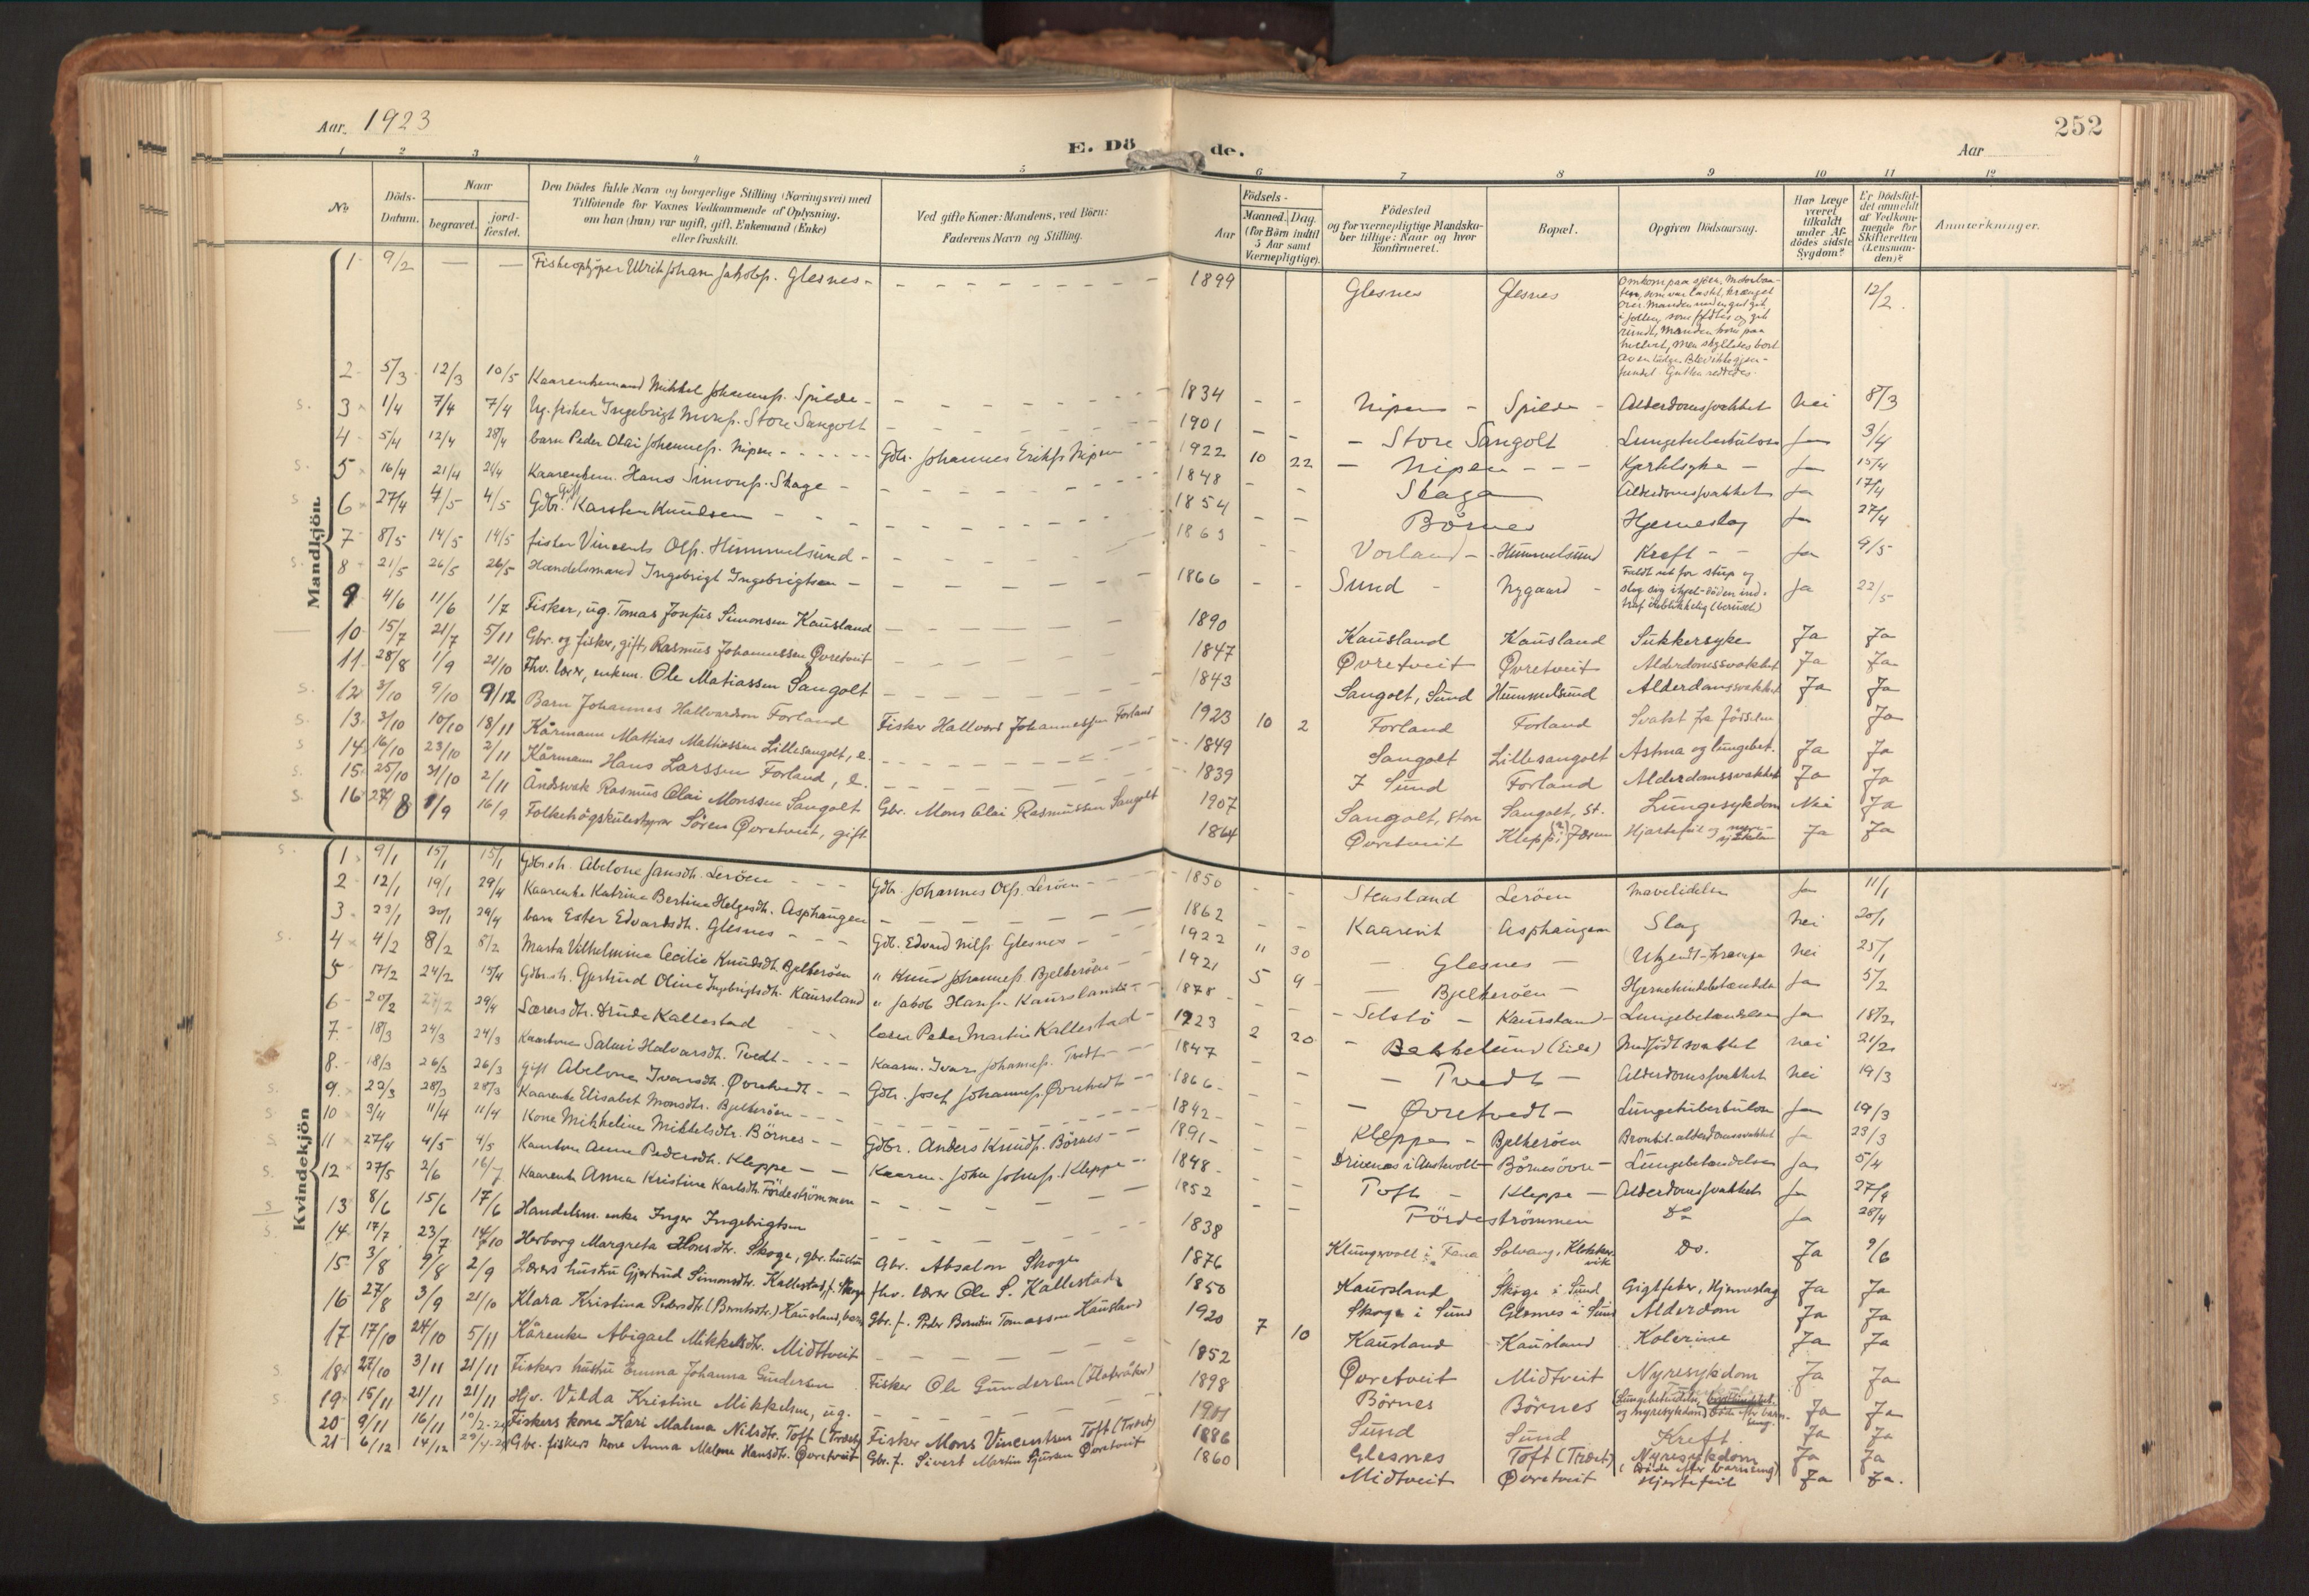 Aar. 1923
252
E. Dö de.
Aar
1 2 3 4 5 6 7 8 9 10 11 12
No
Döds-Datum.
Naar
begravet.
jord-fæstet.
Den Dödes fulde Navn og borgerlige Stilling (Næringsvei) med
Tilföiende for Voxnes Vedkommende af Oplysning.
om han (hun) var ugift, gift, Enkemand (Enke)
eller fraskilt.
Ved gifte Koner: Mandens, ved Börn:
Faderens Navn og Stilling.
Födsels-
Aar
Maaned. Dag.
(for Börn indtil
5 Aar samt
Værnepligtige).
Födested
og for værnepligtige Mandska-
ber tillige: Naar og hvor
konfirmeret.
Bopæl.
Opgiven Dödsaarsag.
Har Læge
været
tilkaldt
under Af-
dödes sidste
Sygdom?
Er Dödsfal-
det anmeldt
af Vedkom-
mende for
Skifteretten
(Lensman-
den)?
Anmærkninger.
Mandkjön.
1 9/2 — — Fiskeopkjöper Ulrik Johan Jakobs. Glesnes 1899 Glesnes Glesnes Omkom paa sjöen. Motorbaa-
ten, som var lastet, krænget
over. Manden
i jollen, som fyldtes og gik
rundt, manden kom paa
hvelvet, men skylletes bort
Blev ikke gjen-
fundet. reddedes. 12/2
2 5/3 12/3 10/5 Kaarenkemand Mikkel Johanness. Spilde 1834 Nipen Spilde Alderdomssvakhet Nei 8/3
3 1/4 7/4 7/4 Ug. fisker Ingebrigt Monss. Store Sangolt 1901 Store Sangolt Lungetuberkulose Ja 3/4
4 5/4 12/4 28/4 barn Peder Olai Johanness. Nipen Gdbr. Johannes Erikss. Nipen 1922 10 22 Nipen Kjertelsyke Ja 15/4
5 16/4 21/4 21/4 Kaarenkem. Hans Simons. Skage 1848 Skage Alderdomssvakhet Ja 17/4
6 27/4 4/5 4/5 Gdbr. Gift Karsten Knudsen 1854 Börnes Hjerneslag Ja 27/4
7 8/5 14/5 14/5 fisker Vincents Ols. Hummelsund 1863 Vorland Hummelsund Kreft Ja 9/5
8 21/5 26/5 26/5 Handelsmand Ingebrigt Ingebrigtsen 1866 Sund Nygaard Faldt ut for stup og
slog sig ihjel - döden ind-
traf öieblikkelig (beruset) Ja 22/5
9 4/6 11/6 1/7 Fisker, ug. Tomas Josefus Simonsen Kausland 1890 Kausland Kausland Sukkersyke Ja Ja
10 15/7 21/7 5/11 Gbr. og fisker, gift, Rasmus Johannessen Øvretveit 1847 Øvretveit Øvretveit Alderdomssvakhet Ja Ja
11 28/8 1/9 21/10 Fhv. lærer, enkem. Ole Matiassen Sangolt 1843 Sangolt, Sund Hummelsund Alderdomssvakhet Ja Ja
12 3/10 9/10 9/12 Barn Johannes Hallvardson Forland Fisker Hallvard Johannessen Forland 1923 10 2 Forland Forland Svakt fra födselen Ja
13 3/10 10/10 18/11 Kårmann Mattias Mathiassen Lillesangolt, e. 1849 Sangolt Lillesangolt Astma og lungebet. Ja Ja
14 16/10 23/10 2/11 Kårmann Hans Larssen Forland, e. 1839 I Sund Forland Alderdomssvakhet Ja Ja
15 25/10 31/10 2/11 Åndsvak Rasmus Olai Monssen Sangolt Gbr. Mons Olai Rasmussen Sangolt 1907 Sangolt, store Sangolt, St. Lungesykdom Nei Ja
16 27/8 1/9 16/9 Folkehögskulestyrar Sören Øvretveit, gift 1864 Øvretveit Klepp (?) i Jæren Hjartefeil og nyre-
sjukdom Ja Ja
Kvindekjön
1 9/1 15/1 15/1 Abelone Jansdt. Leröen Gdbr. Johannes Ols. Leröen 1850 Stensland Leröen Mavelidelse Ja 11/1
2 12/1 19/1 29/4 Kaarenke Katrina Bertina Helgesdt. Asphaugen 1862 Kaarevik Asphaugen Slag Nei 20/1
3 23/1 30/1 29/4 barn Ester Edvardsdt. Glesnes Gdb. Edvard Nilss. Glesnes 1922 11 30 Glesnes (Ukjendt) Krampe Nei 25/1
4 4/2 8/2 8/2 Marta Vilhelmina Cecilie Knudsdt. Bjelkeröen " Knud Johanness. Bjelkeröen 1921 5 9 Bjelkeröen Hjernehindebetændelse Ja 5/2
5 17/2 24/2 15/4 Gjertrud Oline Ingebrigtsdt. Kausland " Jakob Hanss. Kausland 1878 Selstö Kausland Lungebetændelse Ja 18/2
6 20/2 27/2 29/4 Lærersdtr. Drude Kallestad lærer Peder Martin Kallestad 1923 2 20 Bekkelund (Eide) Medfödt svakhet Nei 21/2
7 18/3 24/3 24/3 Salmi Halvorsdt. Tvedt Kaarm. Ivar Johanness. Tvedt 1847 Tvedt Alderdomssvakhet Nei 19/3
8 18/3 26/3 26/3 gift Abelone Ivarsdt. Øvretvedt Gdbr. Josef Johanness. Øvretvedt 1866 Øvretvedt Lungetuberkulose Ja 19/3
9 22/3 28/3 28/3 Kaarenke Elisabet Monsdtr. Bjelkeröen 1842 Kleppe Bjelkeröen Bronkit. alderdomssvakhet Ja 23/3
10 3/4 11/4 11/4 Kone Mikkeline Mikkelsdtr. Börnes Gdbr. Anders Knuds. Börnes 1891 Drivenes i Austevoll Börnesövre Lungebetændelse Ja 5/4
11 27/4 4/5 4/5 Anne Pedersdt. Kleppe Kaarm. John Johns. Kleppe 1848 Toft Kleppe Alderdomssvakhet Ja 27/4
12 27/5 2/6 16/7 Kaarenke Anna Kristine Karlsdt. Fördeströmmen 1852 Fördeströmmen Do Ja 28/4
13 8/6 15/6 17/6 Handelsm. enke Inger Ingebrigtsen 1838 Klungervoll i Fana Solvang, Klokkar-
vik Do. Ja 9/6
14 17/7 23/7 14/10 Herborg Margreta Hansdtr. Skoge, gbr. hustru Gbr. Absalon Skoge 1876 Kausland Skoge i Sund Gigtfeber, Hjerneslag Ja Ja
15 3/8 9/8 2/9 Lærers hustru Gjertrud Simonsdtr. Kallestad, f. Skoge fhv. lærer Ole S. Kallestad 1850 Skoge i Sund Glesnes i Sund Alderdom Ja Ja
16 27/8 3/9 21/10 Klara Kristina Pedersdtr. (Berntsdtr.) Kausland, barn Gbr. f. Peder Berntin Tomassen Kausland 1920 7 10 Kausland Kausland Kolerine Ja Ja
17 17/10 24/10 5/11 Kårenke Abigael Mikkelsdtr. Midttveit 1852 Øvretveit Midtveit Nyresykdom Ja Ja
18 27/10 3/11 21/11 Fiskers hustru Emma Johanna Gundersen Fisker Ole Gundersen (Flatråker) 1898 Börnes Börnes (Lungebetendelse,
og nyresykdom) döde efter barn-
seng. Ja Ja
19 15/11 21/11 21/11 Hjv. Vilda Kristine Mikkelsen, ug. 1901 Sund Sund Kreft Ja Ja
20 9/11 16/11 10/2-24 Fiskers kone Kari Malena Nilsdtr. Toft (Træet) Fisker Mons Vincentsen Toft (Træet) 1886 Glesnes Toft (Træet) Nyresykdom
(Döde efter barneseng) Ja Ja
21 6/12 14/12 Gbr. fiskers kone Anna Malene Hansdtr. Øvretveit Gbr. f. Sivert Martin Sjursen Øvretveit 1860 Midtveit Øvretveit Hjertefeil Ja Ja.